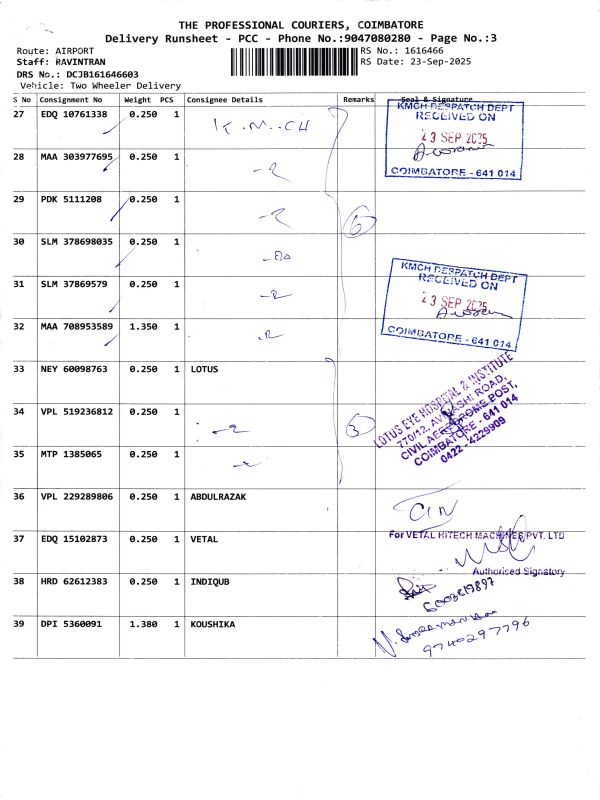 THE PROFESSIONAL COURIERS, COIMBATORE
Delivery Runsheet - PCC - Phone No.:9047080280 - Page No.:3
Route: AIRPORT RS No.: 1616466
Staff: RAVINTRAN RS Date: 23-Sep-2025
DRS No.: DCJB161646603
Vehicle: Two Wheeler Delivery
S No Consignment No Weight PCS Consignee Details Remarks Seal & Signature
27 EDQ 10761338 0.250 1 K.M.CH
KMCH DESPATCH DEPT
RECEIVED ON
23 SEP 2025
COIMBATORE - 641 014
28 MAA 303977695 0.250 1
29 PDK 5111208 0.250 1
6
30 SLM 378698035 0.250 1
31 SLM 37869579 0.250 1
KMCH DESPATCH DEPT
RECEIVED ON
23 SEP 2025
COIMBATORE - 641 014
32 MAA 708953589 1.350 1
33 NEY 60098763 0.250 1 LOTUS
34 VPL 519236812 0.250 1
3
LOTUS EYE HOSPITAL & INSTITUTE
770/12, AVINASHI ROAD,
CIVIL AERODROME POST,
COIMBATORE - 641 014
0422 - 4229909
35 MTP 1385065 0.250 1
36 VPL 229289806 0.250 1 ABDULRAZAK
37 EDQ 15102873 0.250 1 VETAL
For VETAL HITECH MACHINES PVT. LTD
Authorised Signatory
38 HRD 62612383 0.250 1 INDIQUB
39 DPI 5360091 1.380 1 KOUSHIKA
9740297796